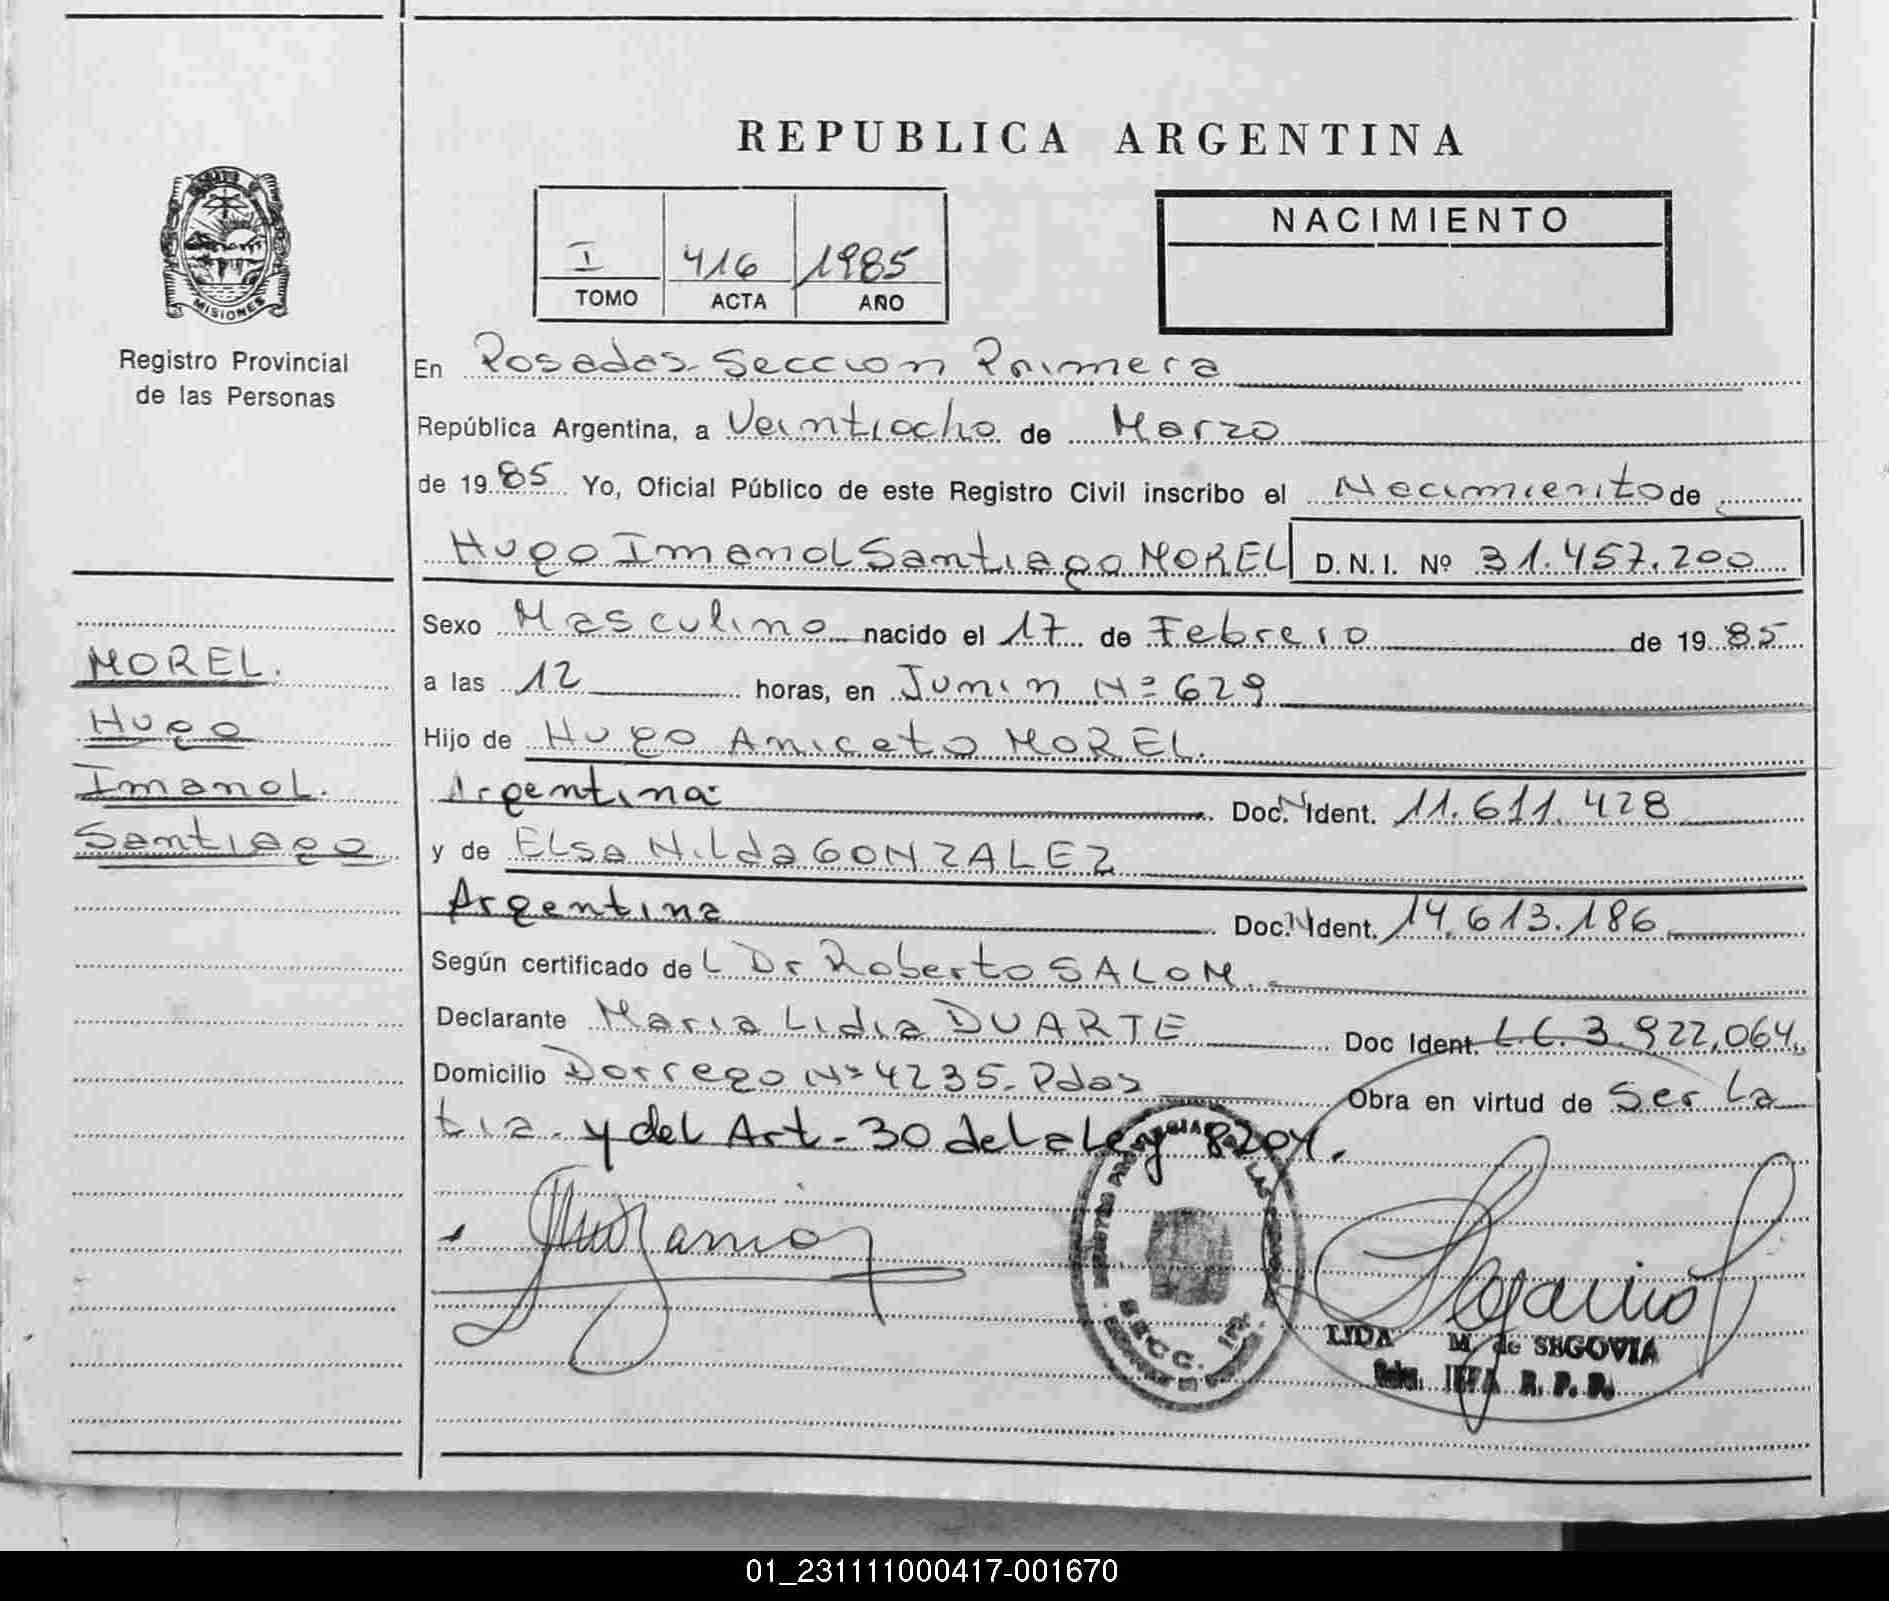 REPUBLICA ARGENTINA
MISIONES
Registro Provincial
de las Personas
I 416 1985
TOMO ACTA AÑO
NACIMIENTO
En Posadas-Seccion Primera
República Argentina, a Veintiocho de Marzo
de 1985 Yo, Oficial Público de este Registro Civil inscribo el Nacimiento de
Hugo Imanol Santiago MOREL D.N.I. Nº 31.457.200
Sexo Masculino nacido el 17 de Febrero de 1985
a las 12 horas, en Junin Nº 629
Hijo de Hugo Aniceto MOREL.
Argentina Doc. N Ident. 11.611.428
y de Elsa Nilda GONZALEZ
Argentina Doc. N Ident. 14.613.186
Según certificado del Dr Roberto SALOM.
Declarante Maria Lidia DUARTE Doc Ident. L.C. 3.922,064.
Domicilio Dorrego Nº 4235. Pdas Obra en virtud de Ser La
tia. y del Art-30 de La Ley 8204.
MOREL.
Hugo
Imanol.
Santiago
SECC. 1ra.
LIDA M. de SEGOVIA
JEFA R. P. P.
01_231111000417-001670